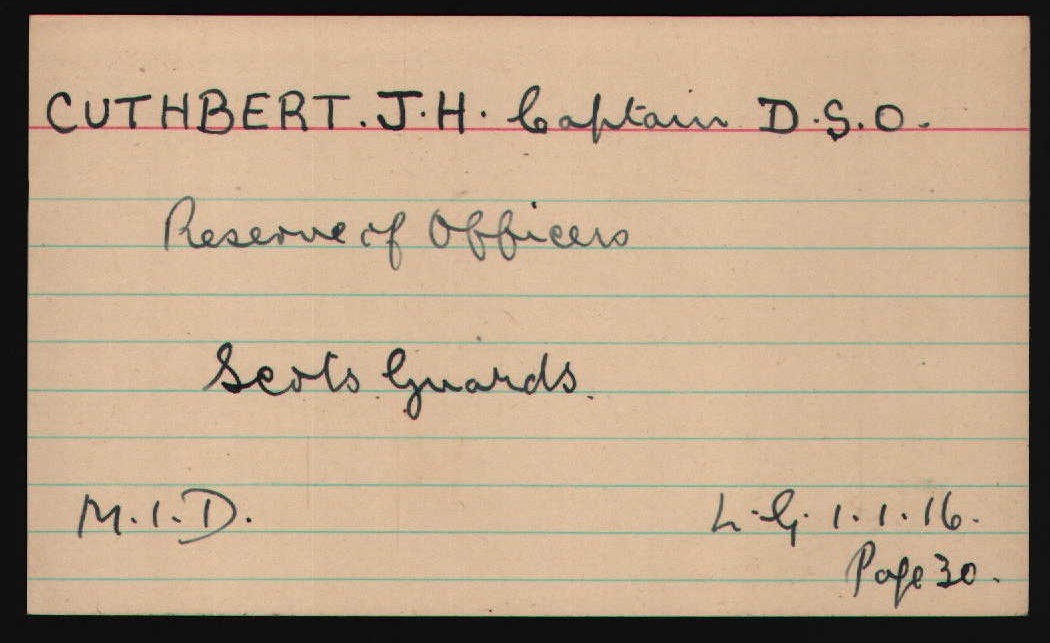 CUTHBERT. J.H. Captain D.S.O.
Reserve of Officers
Scots Guards.
M.I.D. L.G. 1.1.16.
Page 30.